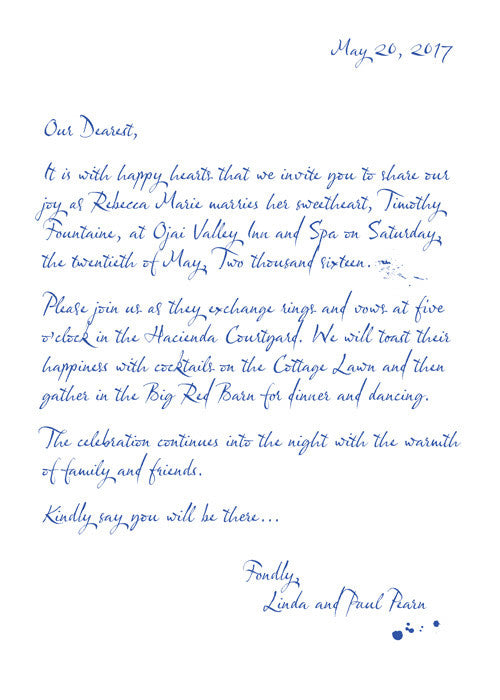 May 20, 2017
Our Dearest,
It is with happy hearts that we invite you to share our
joy as Rebecca Marie marries her sweetheart, Timothy
Fountaine, at Ojai Valley Inn and Spa on Saturday,
the twentieth of May, Two thousand sixteen.
Please join us as they exchange rings and vows at five
o'clock in the Hacienda Courtyard. We will toast their
happiness with cocktails on the Cottage Lawn and then
gather in the Big Red Barn for dinner and dancing.
The celebration continues into the night with the warmth
of family and friends.
Kindly say you will be there...
Fondly,
Linda and Paul Pearn